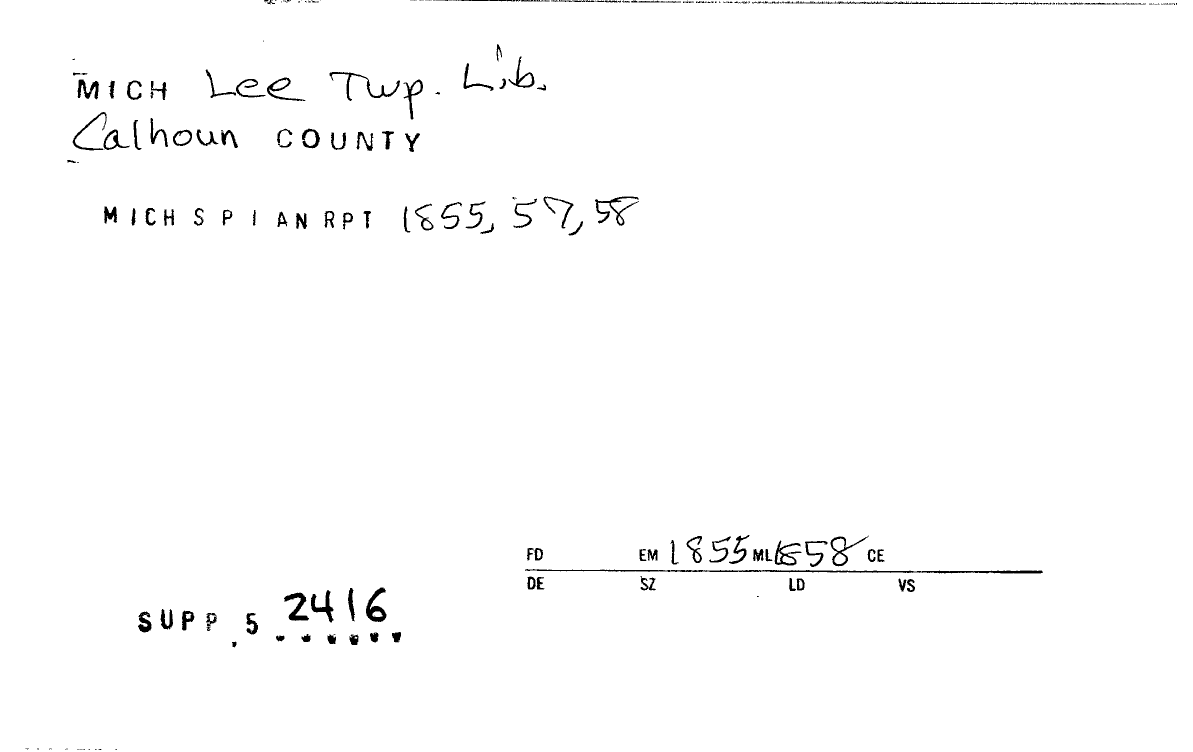 MICH Lee Twp. Lib.
Calhoun COUNTY
MICH S P I AN RPT 1855, 57, 58
FD EM 1855 ML 1858 CE
DE SZ LD VS
SUPP. 5 2416